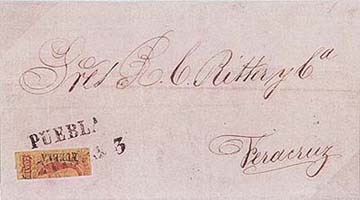 Sres R. C. Ritter y Cª
PUEBLA
3
Veracruz